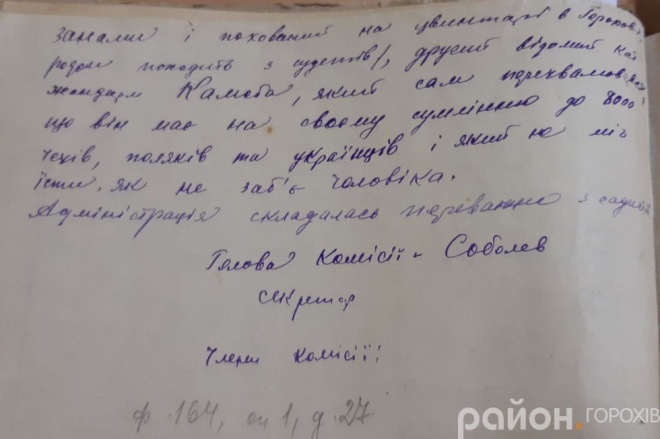 занали і похований на цвинтарі в Горохові
родом походить з судетів/, другий відомий кат
жандарм Камоба, який сам перехвалювався
що він має на своєму сумлінню до 8000
чехів, поляків та українців і який не міг
їсти як не заб'є чоловіка.
Адміністрація складалась переважно з
Голова Комісії - Соболев
секретар
Члени комісії:
ф 164, оп 1, д. 27
район.ГОРОХІВ